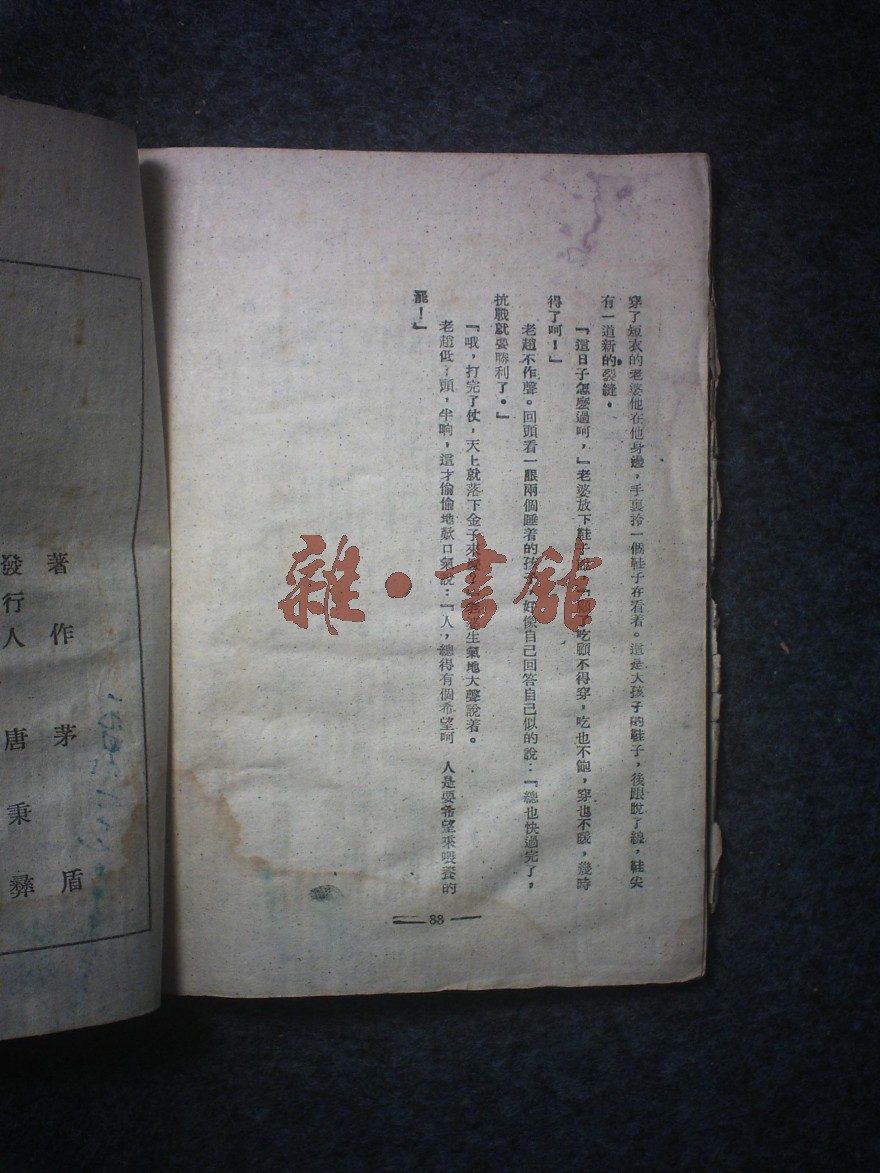 穿了短衣的老婆他在他身邊，手裏拎一個鞋子在看着。這是大孩子的鞋子，後跟脫了線，鞋尖
有一道新的裂縫。
『這日子怎麽過呵，』老婆放下鞋子 『顧了吃顧不得穿，吃也不飽，穿也不暖，幾時
得了呵！』
老趙不作聲。回頭看一眼兩個睡着的孩子 好像自己回答自己似的說：『總也快過完了，
抗戰就要勝利了。』
『哦，打完了仗，天上就落下金子來 老婆生氣地大聲說着。
老趙低 頭，半晌，這才偷偷地歎口氣說：『人，總得有個希望呵 人是要希望來喂養的
罷！』
88
雜·書館
著作 茅盾
發行人 唐秉彝